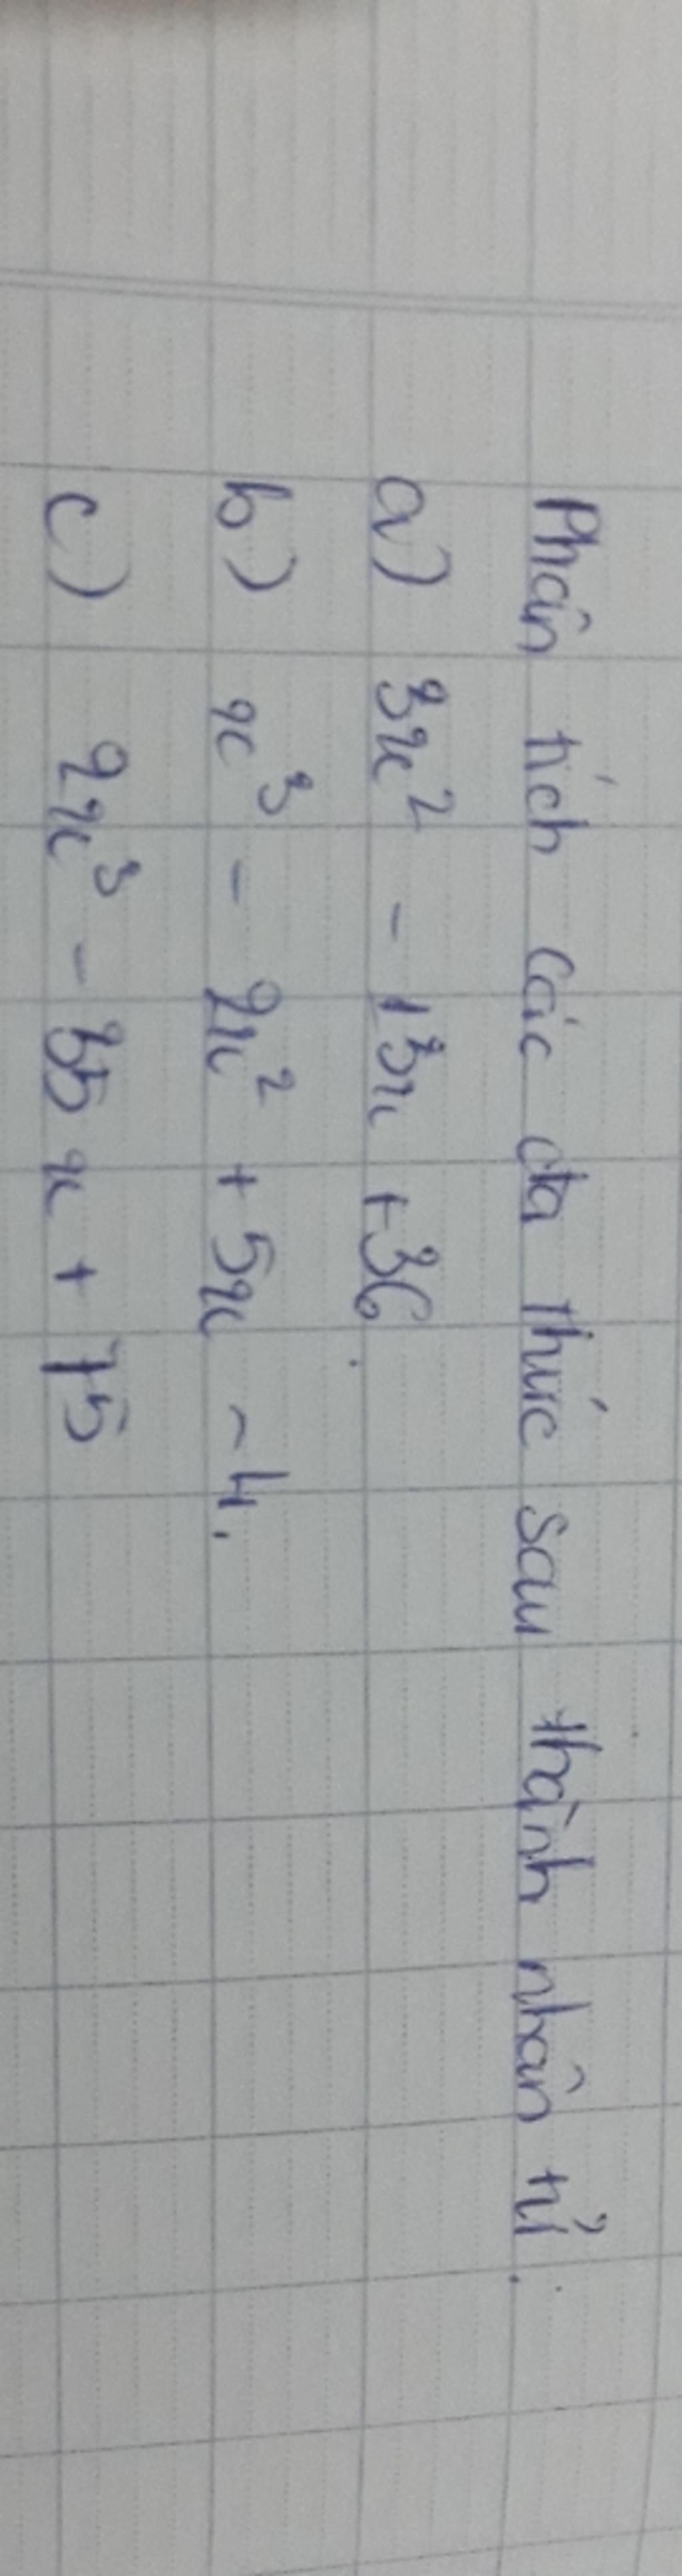 Phân tích các đa thức sau thành nhân tử.
a) 3x² - 13x + 36.
b) x³ - 2x² + 5x - 4.
c) 2x³ - 35x + 75